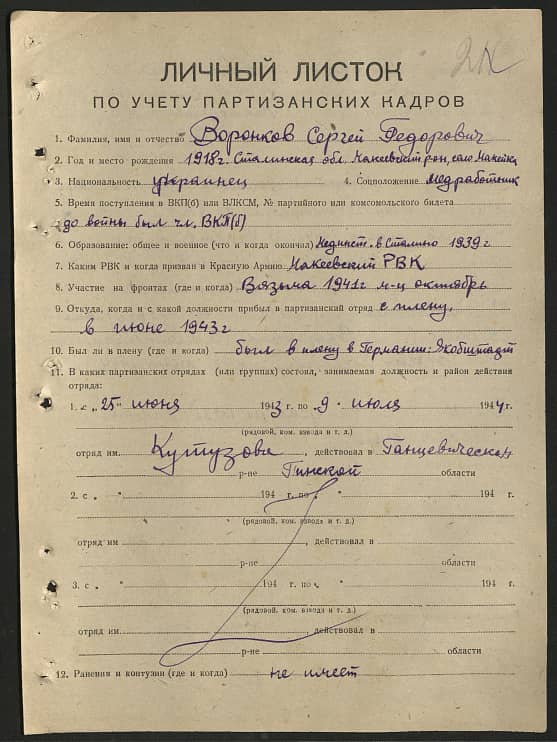 ЛИЧНЫЙ ЛИСТОК
ПО УЧЕТУ ПАРТИЗАНСКИХ КАДРОВ
1. Фамилия, имя и отчество Воронков Сергей Федорович
2. Год и место рождения 1918г. Сталинская обл. Макеевский рон, село Макеевка
3. Национальность украинец 4. Соцположение медработник
5. Время поступления в ВКП(б) или ВЛКСМ, № партийного или комсомольского билета
до войны был чл. ВКП(б)
6. Образование: общее и военное (что и когда окончил) Мединст. в Сталино 1939 г
7. Каким РВК и когда призван в Красную Армию Макеевский РВК
8. Участие на фронтах (где и когда) Вязьма 1941 г м-ц октябрь
9. Откуда, когда и с какой должности прибыл в партизанский отряд с плену,
в июне 1943 г
10. Был ли в плену (где и когда) был в плену в Германии: Якобштадт
11. В каких партизанских отрядах (или группах) состоял, занимаемая должность и район действия
отряда:
1. с „25" июня 1943 г. по „9" июля 1944 г.
(рядовой, ком. взвода и т. д.)
отряд им. Кутузова, действовал в Ганцевическом
р-не Пинской области
2. с „ " 194 г. по „ " 194 г.
(рядовой, ком. взвода и т. д.)
отряд им , действовал в
р-не области
3. с „ " 194 г. по „ " 194 г.
(рядовой, ком. взвода и т. д.)
отряд им действовал в
р-не области
12. Ранения и контузии (где и когда) не имеет